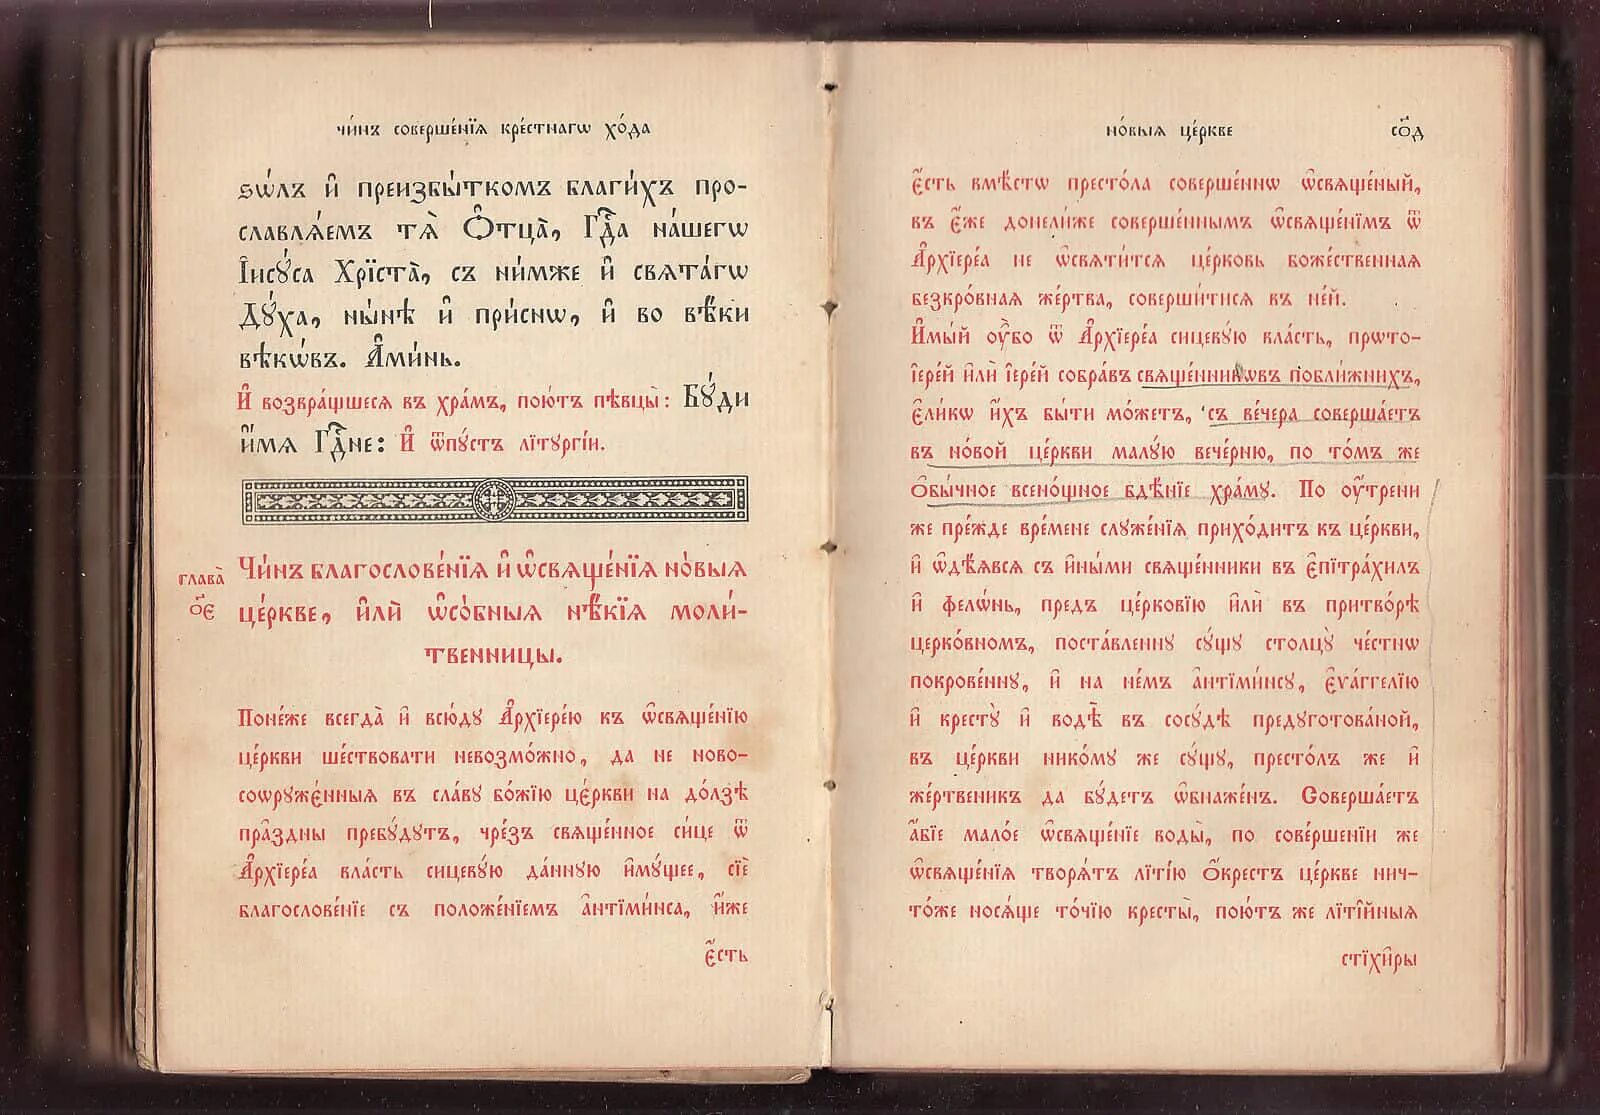 чи́нъ соверше́нїѧ кре́стнагѡ хо́да
ѕѡ́лъ и҆ преизбы́ткомъ благи́хъ про-
славлѧ́емъ тѧ̀ Ѻ҆тца̀, Гдⷭ҇а на́шегѡ
І҆исꙋ́са Хрїста̀, съ ни́мже и҆ свѧта́гѡ
Дꙋ́ха, ны́нѣ и҆ при́снѡ, и҆ во вѣ́ки
вѣкѡ́въ. А҆ми́нь.
И҆ возвра́щшесѧ въ хра́мъ, пою́тъ пѣвцы̀: Бꙋ́ди
и҆́мѧ Гдⷭ҇не: И҆ ѿпꙋ́стъ лїтꙋргі́и.
глава̀
о҃є
Чи́нъ благослове́нїѧ и҆ ѡ҆свѧще́нїѧ но́выѧ
це́ркве, и҆лѝ ѡ҆со́бныѧ нѣ́кїѧ моли́-
твенницы.
Поне́же всегда̀ и҆ всю́дꙋ А҆рхїере́ю къ ѡ҆свѧще́нїю
це́ркви ше́ствовати невозмо́жно, да не ново-
соѡрꙋже́нныѧ въ сла́вꙋ бо́жїю це́ркви на до́лзѣ
пра̑здны пребꙋ́дꙋтъ, чре́зъ свѧще́нное си́це ѿ
А҆рхїере́а вла́сть сицевꙋ́ю да́ннꙋю и҆мꙋ́щее, сїѐ
благослове́нїе съ положе́нїемъ а҆нтїми́нса, и҆́же
є҆́сть
но́выѧ це́ркве
со҃д
є҆́сть вмѣ́стѡ престо́ла соверше́ннѡ ѡ҆свѧще́ный,
въ є҆́же донели́же соверше́ннымъ ѡ҆свѧще́нїмъ ѿ
А҆рхїере́а не ѡ҆свѧти́тсѧ це́рковь боже́ственнаѧ
безкро́внаѧ же́ртва, соверши́тисѧ въ не́й.
И҆мы́й ᲂу҆̀бо ѿ А҆рхїере́а сицевꙋ́ю вла́сть, прѡто-
їере́й и҆лѝ і҆ере́й собра́въ свѧще́нникѡвъ побли́жнихъ,
є҆ли́кѡ и҆́хъ бы́ти мо́жетъ, съ ве́чера соверша́етъ
въ но́вой це́ркви ма́лꙋю вече́рню, по то́мъ же
Ѻ҆бы́чное всено́щное бдѣ́нїе хра́мꙋ. По ᲂу҆́трени
же пре́жде вре́мене слꙋже́нїѧ прихо́дитъ къ це́ркви,
и҆ ѡ҆дѣ́ѧвсѧ съ и҆ны́ми свѧще́нники въ є҆пїтрахи́лъ
и҆ фело́нь, предъ це́рковїю и҆лѝ въ притво́рѣ
церко́вномъ, поста́вленнꙋ сꙋ́щꙋ столцꙋ̀ че́стнѡ
покрове́ннꙋ, и҆ на не́мъ а҆нтїми́нсꙋ, є҆ѵа́ггелїю
и҆ крестꙋ̀ и҆ водѣ̀ въ сосꙋ́дѣ предꙋгото́ваной,
въ це́ркви никомꙋ̀ же сꙋ́щꙋ, престо́лъ же и҆
же́ртвеникъ да бꙋ́детъ ѡ҆бнаже́нъ. Соверша́етъ
а҆́бїе ма́лое ѡ҆свѧще́нїе воды̀, по соверше́нїи же
ѡ҆свѧще́нїѧ творѧ́тъ лїтію̀ Ѻ҆́крестъ це́ркве нич-
то́же носѧ́ще то́чїю кресты̀, пою́тъ же лїті̑йныѧ
стїхи̑ры